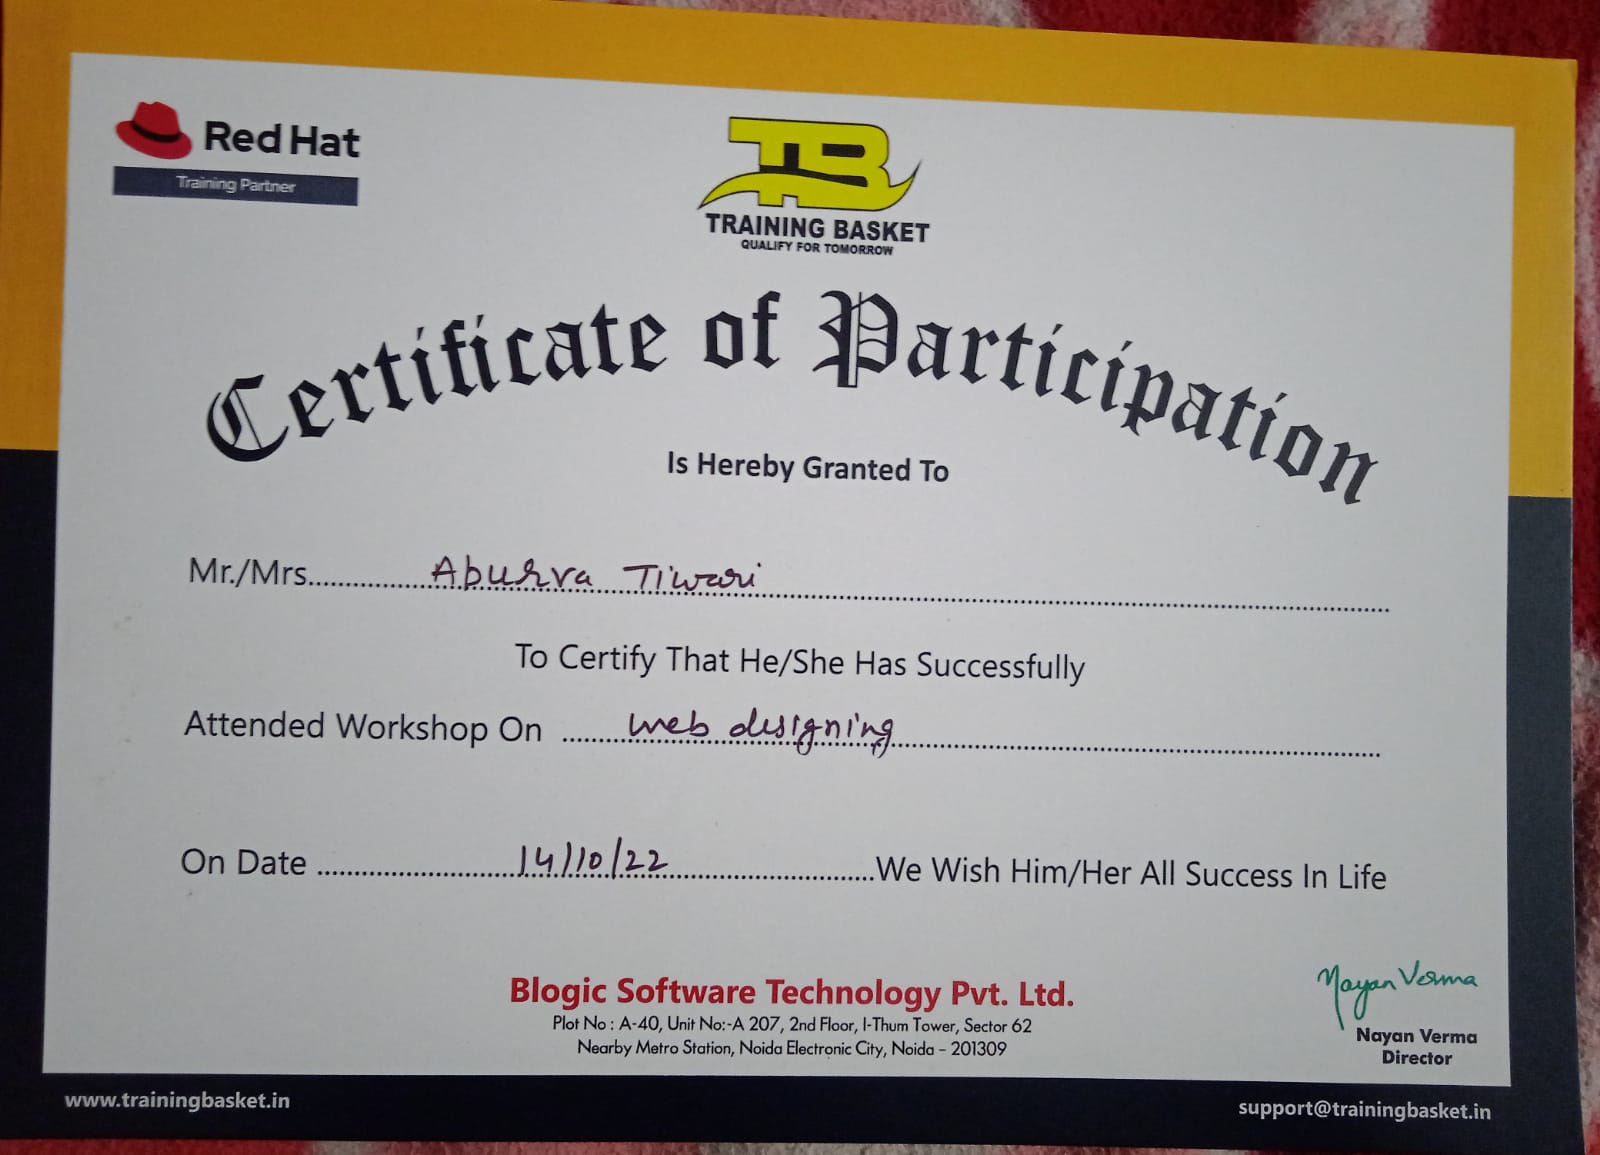 Red Hat
Training Partner
TB
TRAINING BASKET
QUALIFY FOR TOMORROW
Certificate of Participation
Is Hereby Granted To
Mr./Mrs. Apurva Tiwari
To Certify That He/She Has Successfully
Attended Workshop On web designing
On Date 14/10/22 We Wish Him/Her All Success In Life
Blogic Software Technology Pvt. Ltd.
Plot No : A-40, Unit No:-A 207, 2nd Floor, I-Thum Tower, Sector 62
Nearby Metro Station, Noida Electronic City, Noida - 201309
Nayan Verma
Nayan Verma
Director
www.trainingbasket.in
support@trainingbasket.in